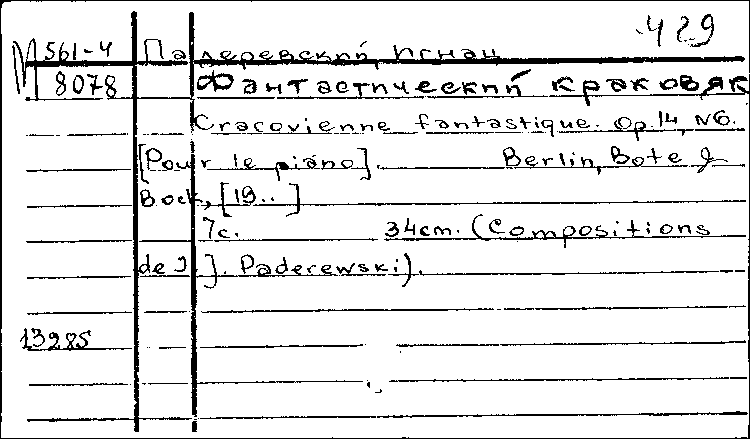 429
М 561-4 Падеревский, Игнац
8078 Фантастический краковяк
Cracovienne fantastique. Op.14, N6.
[Pour le piano]. Berlin, Bote &
Bock, [19..]
7c. 34cm. (Compositions
de J. J. Paderewski).
13285